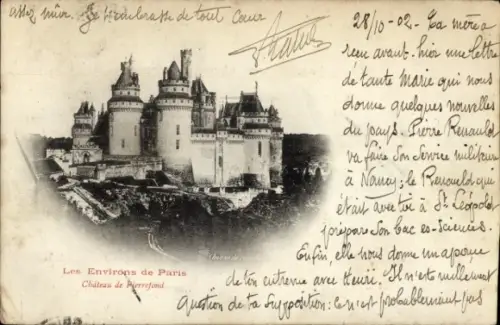 28/10-02. Ta mère a
reçu avant-hier une lettre
de tante Marie qui nous
donne quelques nouvelles
du pays. Pierre Renauld
va faire son service militaire
à Nancy; le Renauld qui
était avec toi à St Léopold
prépare son bac es-Sciences.
Enfin, elle nous donne un aperçu
de ton entrevue avec Henri. Il n'est nullement
question de ta supposition: ce n'est probablement pas
assez mûr. Je t'embrasse de tout cœur
Les Environs de Paris
Château de Pierrefond